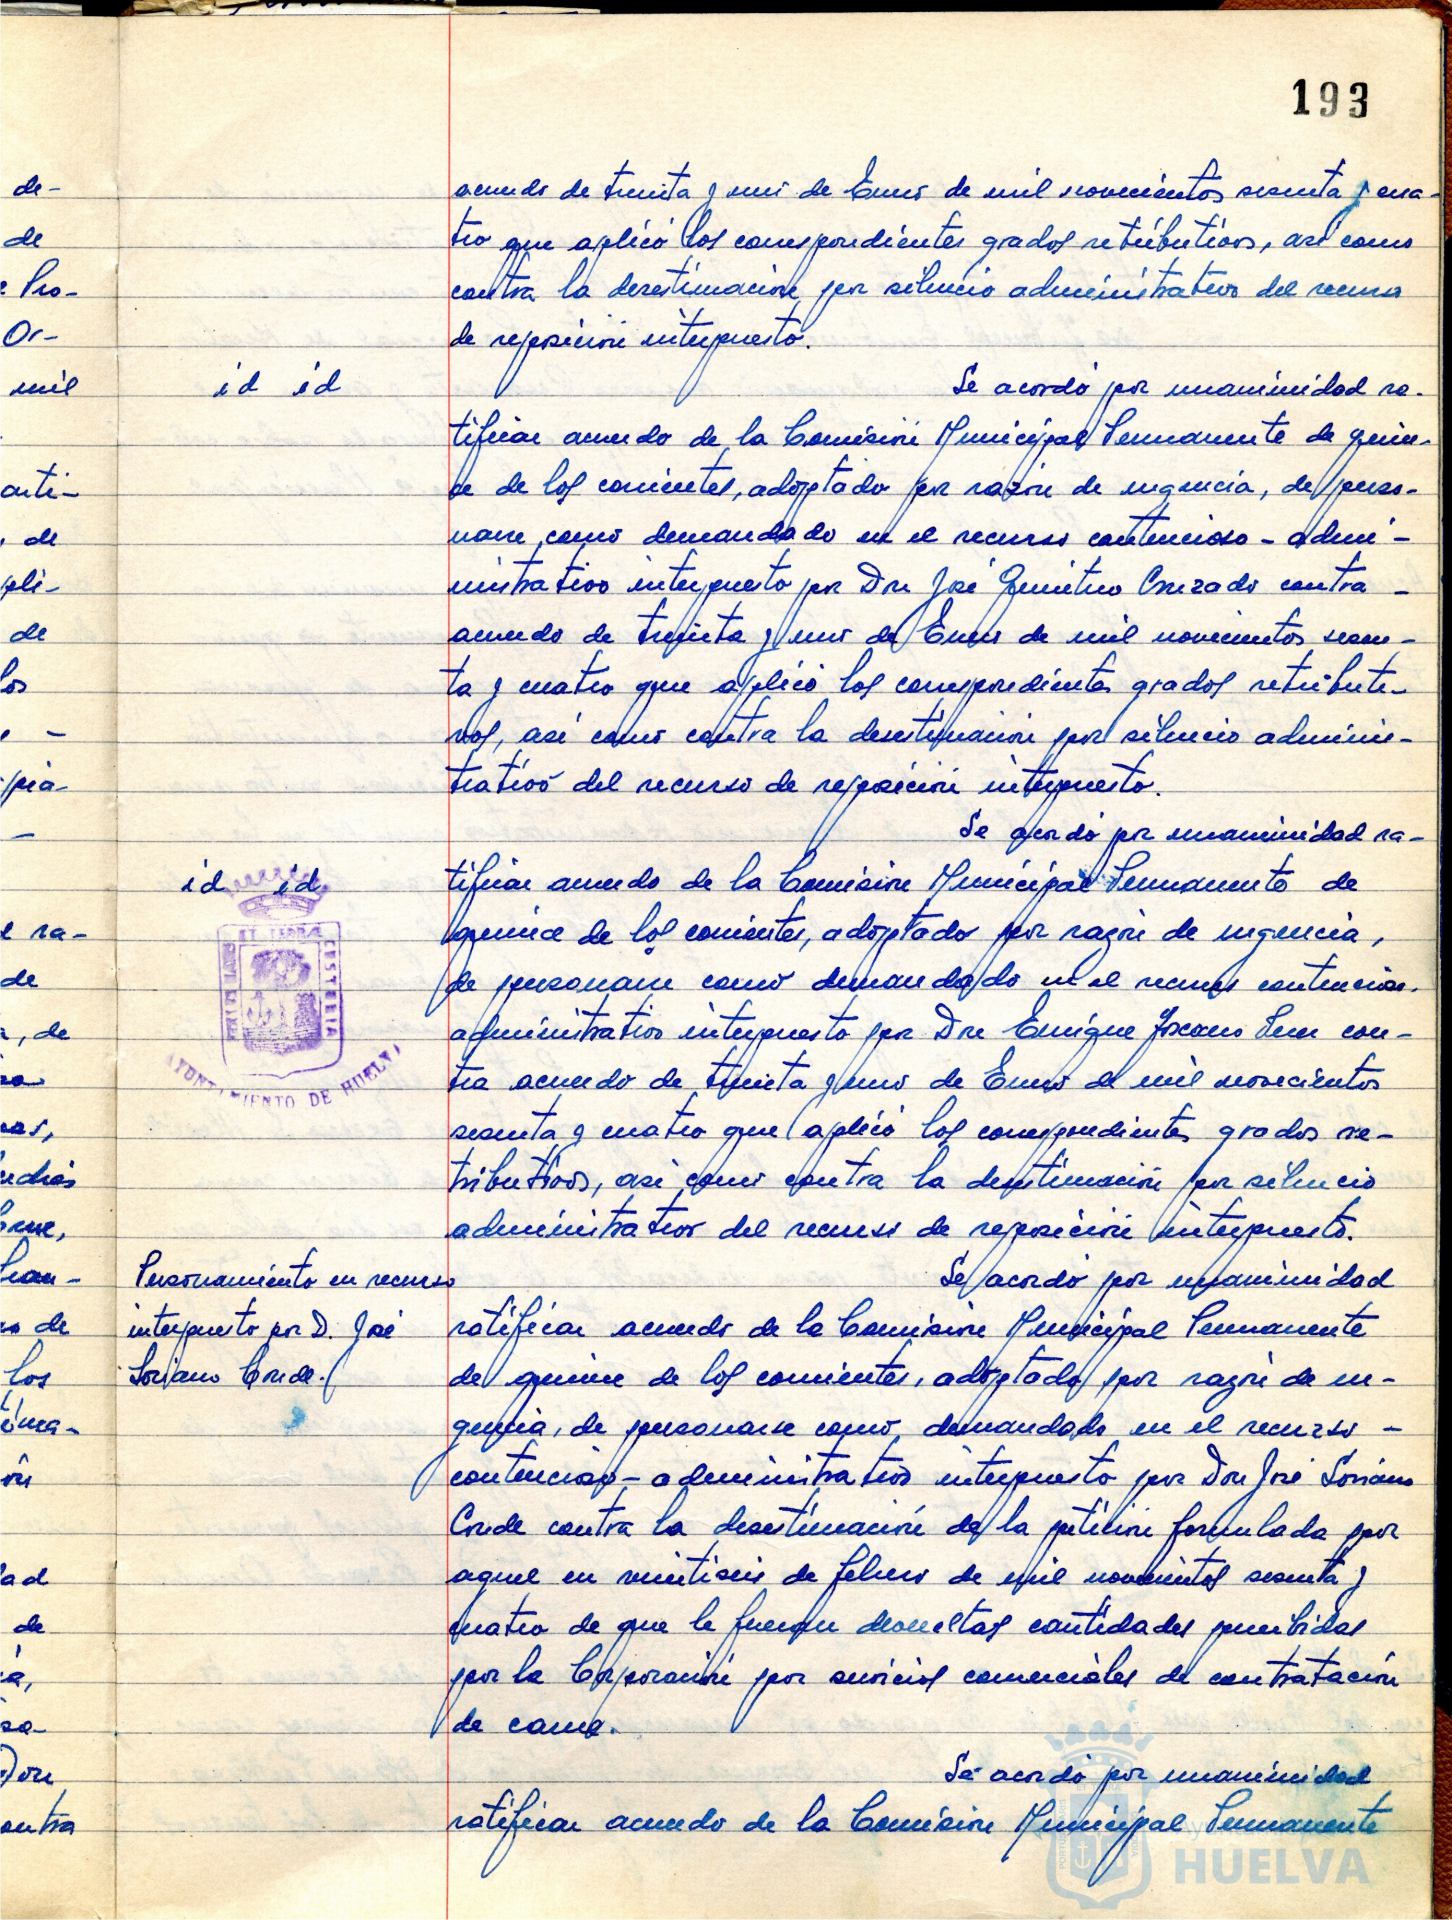 193
acuerdo de treinta y uno de Enero de mil novecientos sesenta y cua-
tro que aplicó los correspondientes grados retributivos, así como
contra la desestimación por silencio administrativo del recurso
de reposición interpuesto.
id id
Se acordó por unanimidad ra-
tificar acuerdo de la Comisión Municipal Permanente de quin-
ce de los corrientes, adoptado por razón de urgencia, de perso-
narse como demandado en el recurso contencioso-admi-
nistrativo interpuesto por Don José Quintero Cruzado contra
acuerdo de treinta y uno de Enero de mil novecientos sesen-
ta y cuatro que aplicó los correspondientes grados retributi-
vos, así como contra la desestimación por silencio adminis-
trativo del recurso de reposición interpuesto.
Se acordó por unanimidad ra-
id id
tificar acuerdo de la Comisión Municipal Permanente de
quince de los corrientes, adoptado por razón de urgencia,
de personarse como demandado en el recurso contencioso-
administrativo interpuesto por Don Enrique con-
tra acuerdo de treinta y uno de Enero de mil novecientos
sesenta y cuatro que aplicó los correspondientes grados re-
tributivos, así como contra la desestimación por silencio
administrativo del recurso de reposición interpuesto.
AYUNTAMIENTO DE HUELVA
Personamiento en recurso
interpuesto por D. José
Soriano Conde.
Se acordó por unanimidad
ratificar acuerdo de la Comisión Municipal Permanente
de quince de los corrientes, adoptado por razón de ur-
gencia, de personarse como demandado en el recurso -
contencioso-administrativo interpuesto por Don José Soriano
Conde contra la desestimación de la petición formulada por
aquel en veintiseis de febrero de mil novecientos sesenta y
cuatro de que le fueran devueltas cantidades percibidas
por la Corporación por servicios comerciales de contratación
de carne.
Se acordó por unanimidad
ratificar acuerdo de la Comisión Municipal Permanente
HUELVA